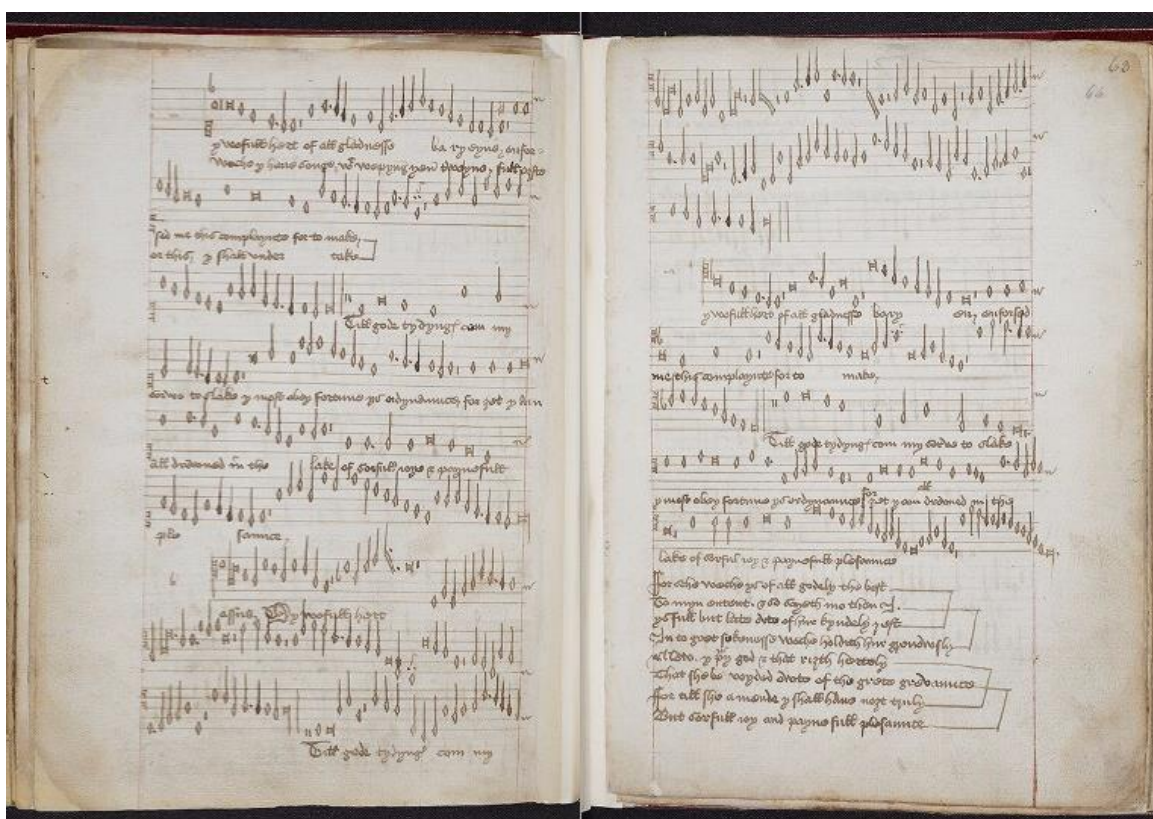 y wofull hert of all gladnesse ba ry eyne, enfor=
Weche y have songe, wt wepyng yen tweyne, full
sed me this complaynte for to make,
or this, y shall under take
Till gode tydyng com my
sorwe to slake y moste obey fortune ys ordynaunce, for yet y am
all drowned in the lake of sorfull joye & paynefull
ple saunce.
My wofull hert
Till gode tydyng com my
63
64
y wofull hert of all gladnesse bary en, enforsed
me this complaynte for to make,
Till gode tydyng com my sorwe to slake
y moste obey fortune ys ordynaunce for yet y am drowned in this
all
lake of sorfull joy & paynefull plesaunce
For sche weche ys of all godely the best
To myn entent. god seyth me then
ys full but late of hir kyndely rest
In to gret sekenesse weche holdith hir
god & that rizth hertely
That she be voyded of the grete grevaunce
For till she amende y shall have nozt truly
But sorfull joy and payne full plesaunce